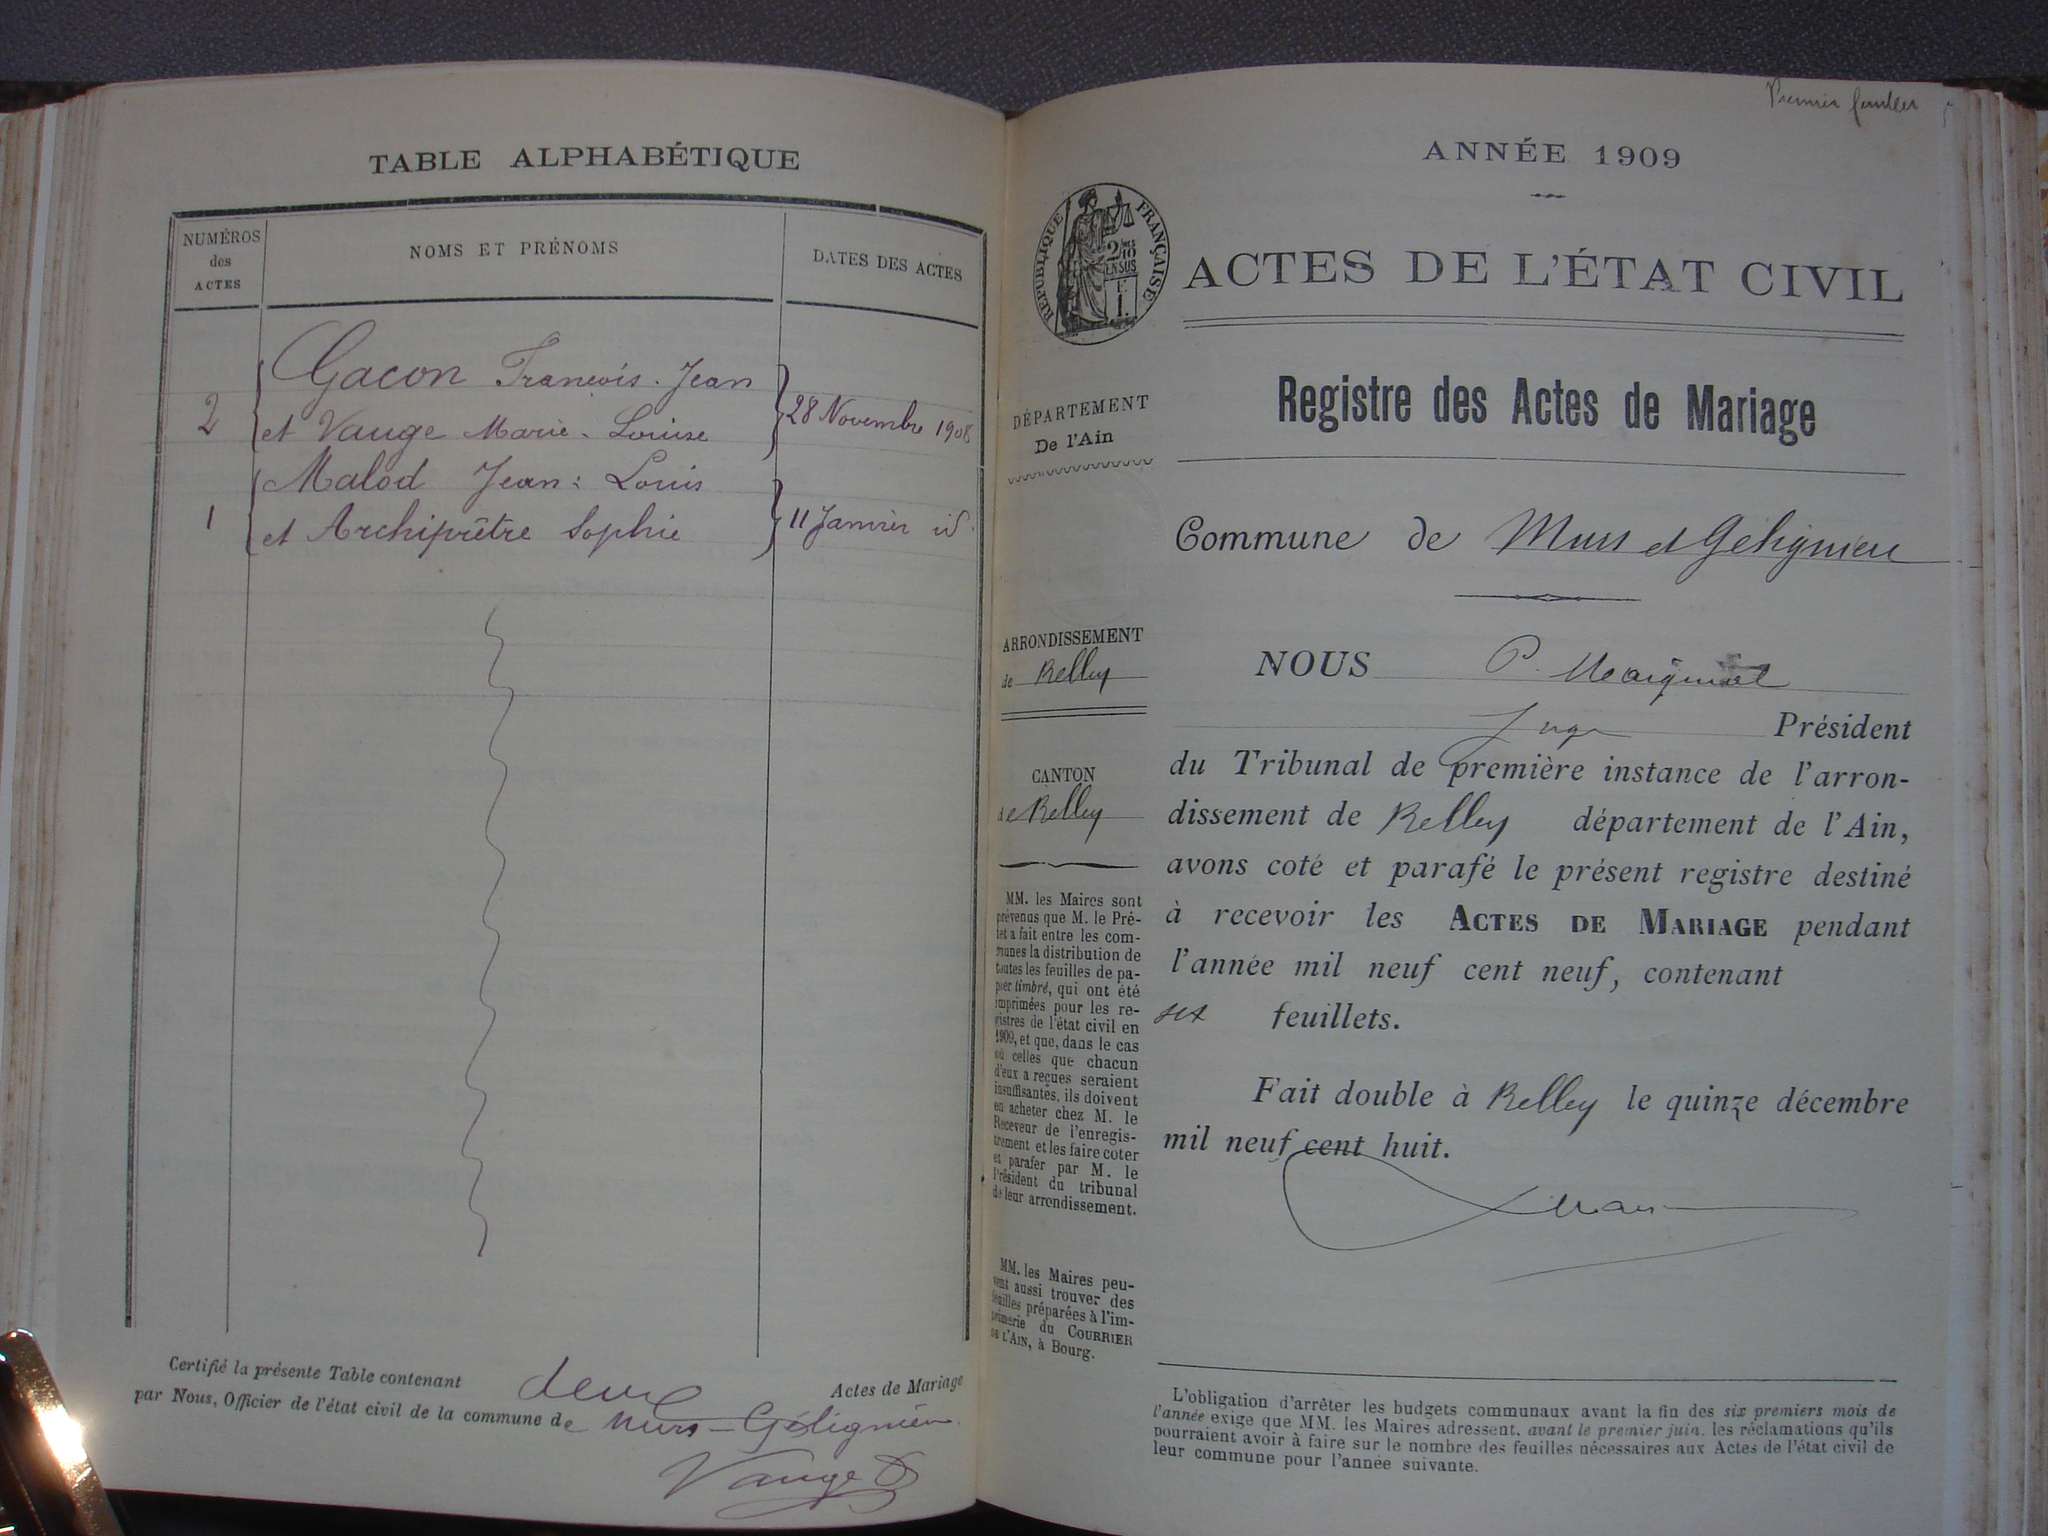 TABLE ALPHABÉTIQUE
NUMÉROS
des
ACTES
NOMS ET PRÉNOMS
DATES DES ACTES
Gacon François-Jean
2 et Vauge Marie-Louise 28 Novembre 1908
Malod Jean-Louis
1 et Archiprêtre Sophie 11 Janvier id.
Certifié la présente Table contenant deux Actes de Mariage
par Nous, Officier de l'état civil de la commune de Murs-Gélignieux
Vauge
Premier feuillet
ANNÉE 1909
RÉPUBLIQUE FRANÇAISE
2/10
EN SUS
1 F.
ACTES DE L'ÉTAT CIVIL
Registre des Actes de Mariage
DÉPARTEMENT
De l'Ain
Commune de Murs et Gélignieux
ARRONDISSEMENT
de Belley
CANTON
de Belley
MM. les Maires sont
prévenus que M. le Pré-
fet a fait entre les com-
munes la distribution de
toutes les feuilles de pa-
pier timbré, qui ont été
imprimées pour les re-
gistres de l'état civil en
1909, et que, dans le cas
où celles que chacun
d'eux a reçues seraient
insuffisantes, ils doivent
en acheter chez M. le
Receveur de l'enregis-
trement et les faire coter
et parafer par M. le
Président du tribunal
de leur arrondissement.
MM. les Maires peu-
vent aussi trouver des
feuilles préparées à l'im-
primerie du COURRIER
DE L'AIN, à Bourg.
NOUS P.
Juge Président
du Tribunal de première instance de l'arron-
dissement de Belley département de l'Ain,
avons coté et parafé le présent registre destiné
à recevoir les ACTES DE MARIAGE pendant
l'année mil neuf cent neuf, contenant
six feuillets.
Fait double à Belley le quinze décembre
mil neuf cent huit.
L'obligation d'arrêter les budgets communaux avant la fin des six premiers mois de
l'année exige que MM. les Maires adressent, avant le premier juin, les réclamations qu'ils
pourraient avoir à faire sur le nombre des feuilles nécessaires aux Actes de l'état civil de
leur commune pour l'année suivante.